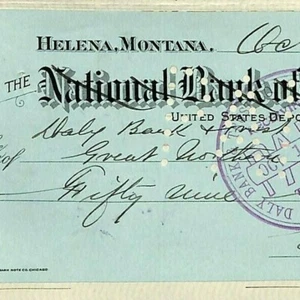 HELENA, MONTANA. Oc
THE National Bank of
UNITED STATES DEPO
Daly Bank &
of Great Northern
Fifty nine
DALY BANK
BANK NOTE CO. CHICAGO